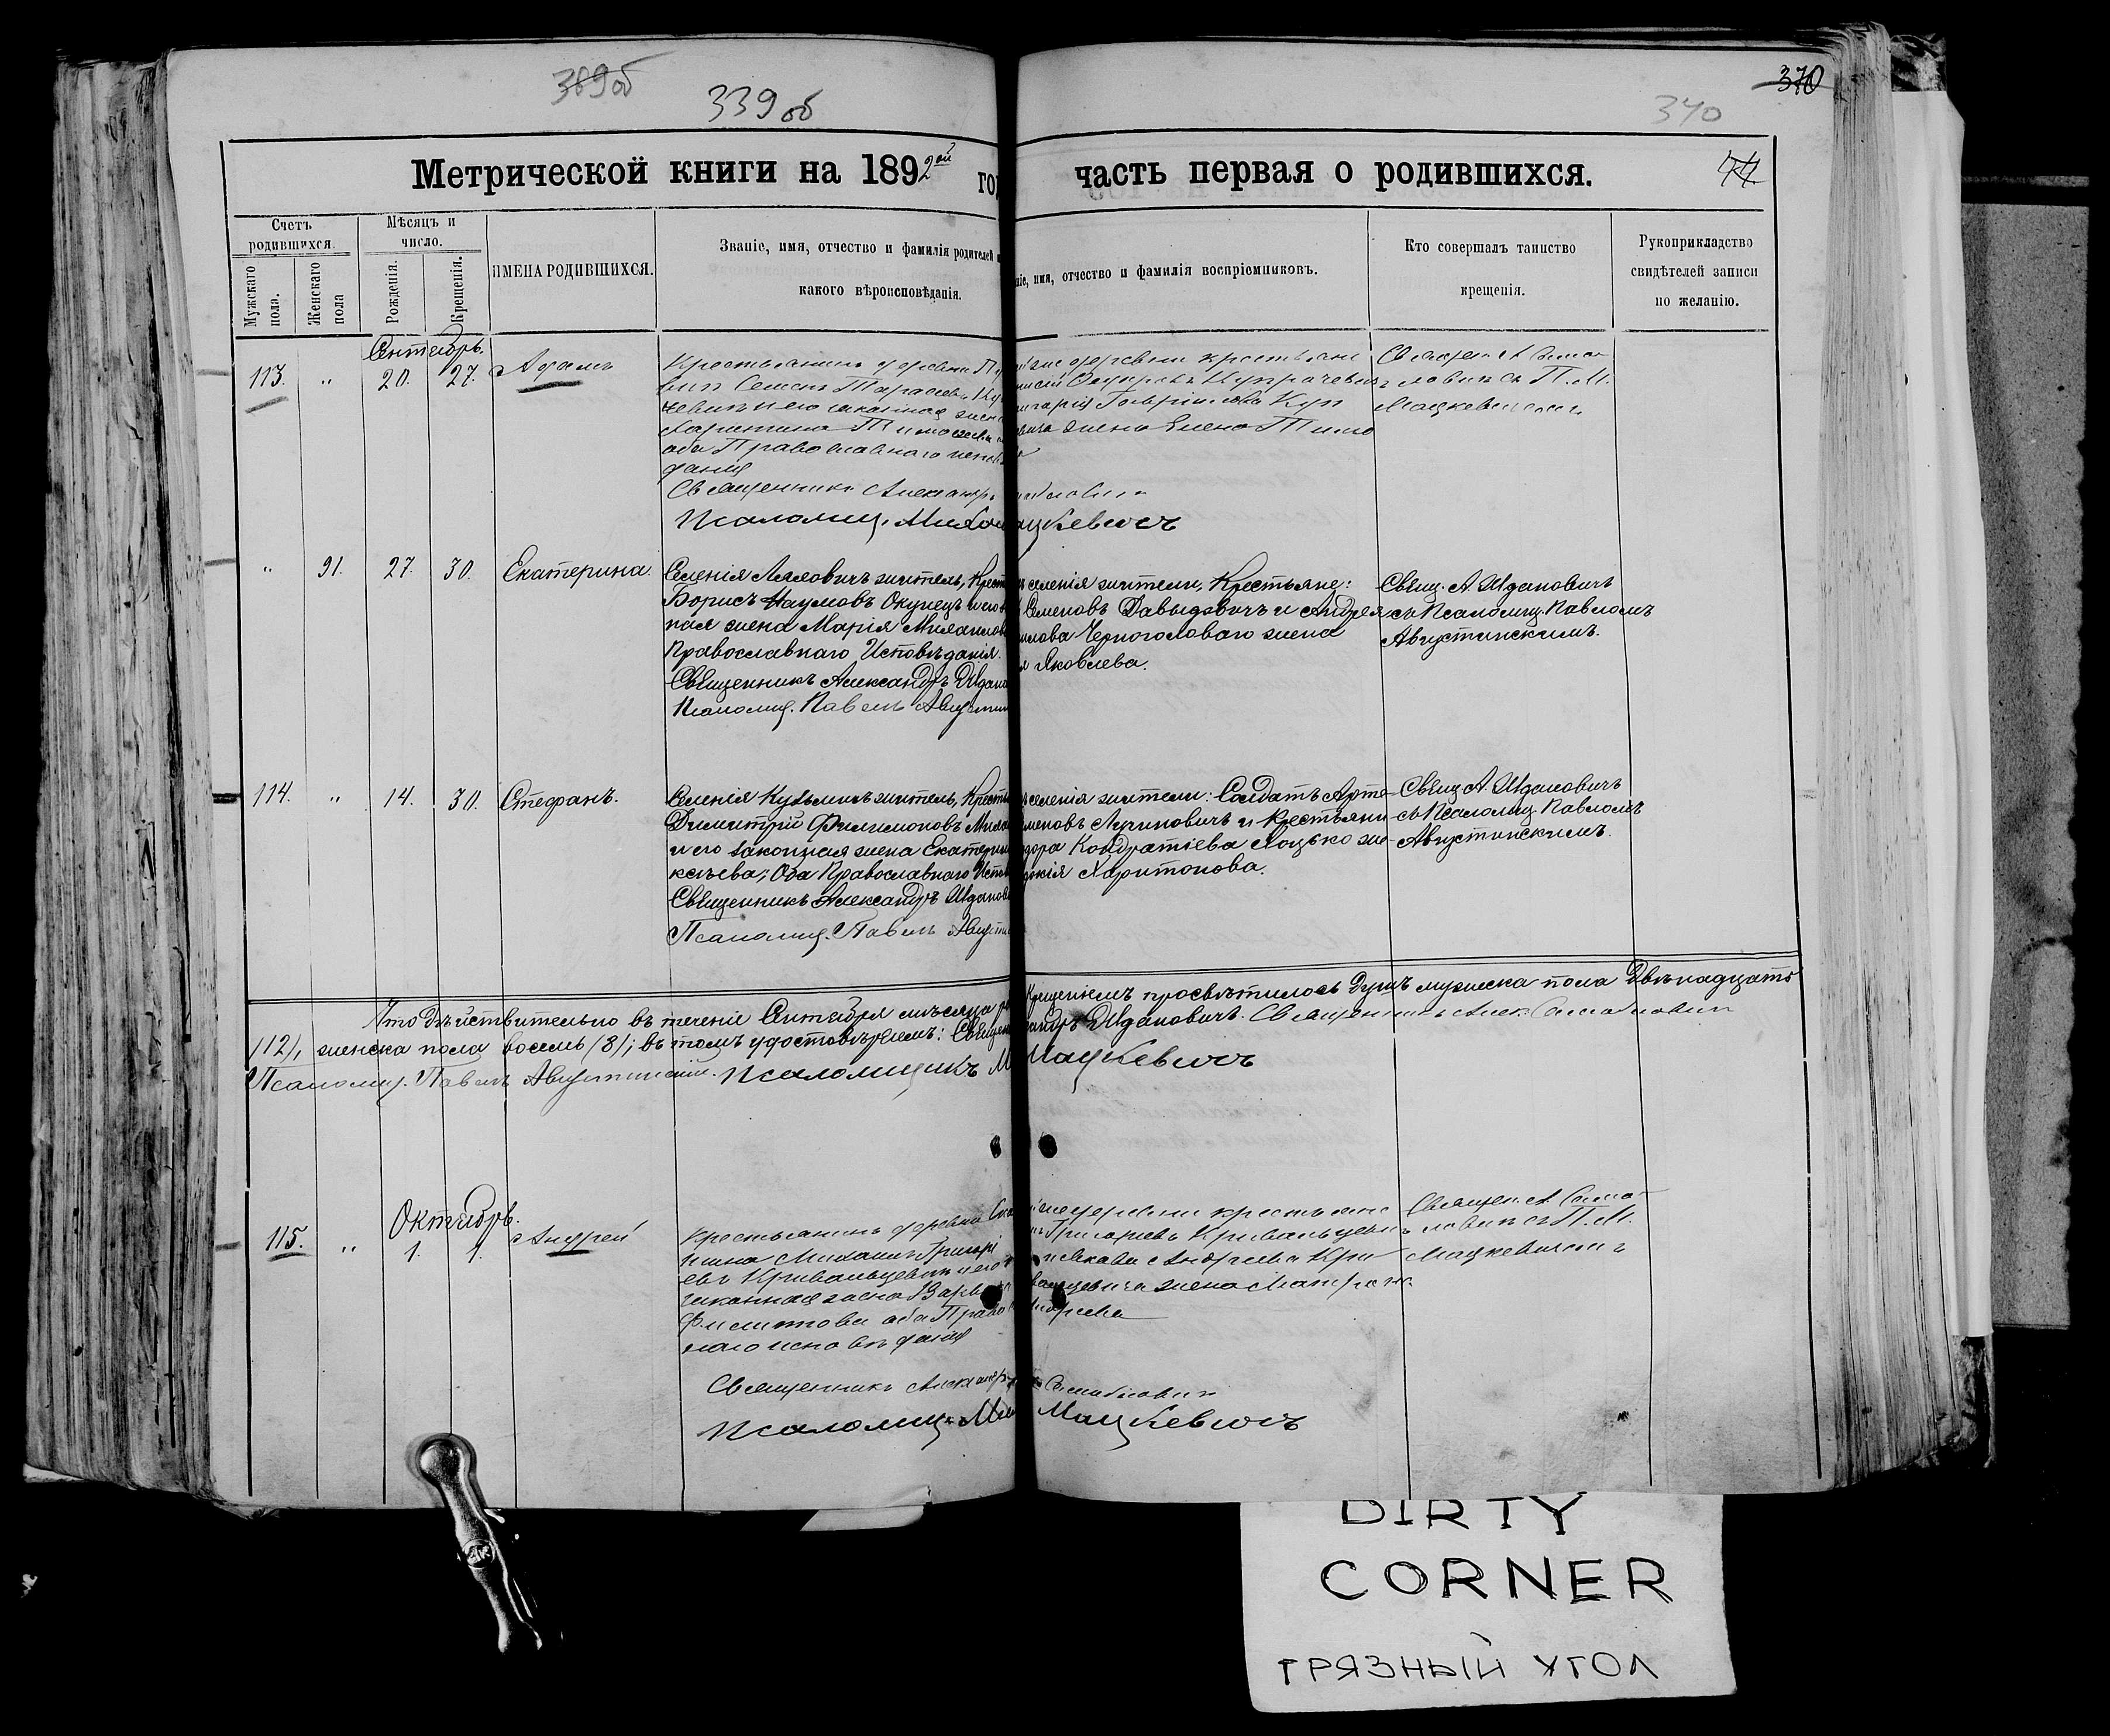 389об
339об
370
340
Метрической книги на 1892ой го
часть первая о родившихся.
44
Счетъ родившихся.
Мужскаго пола.
Женскаго пола
Мѣсяцъ и число.
Рожденія.
Крещенія.
ИМЕНА РОДИВШИХСЯ.
Званіе, имя, отчество и фамилія родителей и
какого вѣроисповѣданія.
ніе, имя, отчество и фамилія воспріемниковъ.
Кто совершалъ таинство
крещенія.
Рукоприкладство
свидѣтелей записи
по желанію.
Сентябрь.
113. " 20. 27. Адамъ
Крестьянинъ деревни
Семенъ Тарасовъ
его законная жена
Харитина Тимофеева
оба Православнаго исповѣ
данія
Священникъ Александръ
Псаломщ. Миха
ацкевичъ
деревни крестьяне
Гавріилова Куп
евича жена Елена Тимо
Священ. А. Сама
ловичъ съ П. М.
Мацкевичемъ
" 91. 27. 30. Екатерина.
Селенія Лялович житель, Крест
Борисъ Наумовъ Окунецъ и его
ная жена Марія Михаилов
Православнаго Исповѣданія.
Священникъ Александръ Ждано
Псаломщ. Павелъ Августин
селенія жители, Крестьяне:
Семеновъ Давыдовичъ и Андрея
илова Черноголоваго жена
я Яковлева.
Свящ. А. Ждановичъ
съ Псаломщ. Павломъ
Августинскимъ.
114. " 14. 30. Стефанъ.
Селенія Кузьмичъ житель, Кресть
Димитрій Филимоновъ
и его законная жена Екатерин
ксѣева; Оба Православнаго Испо
Священникъ Александръ Жданов
Псаломщ. Павелъ Августи
селенія жители: Солдатъ Арте
меновъ Лучиновичъ и Крестьяни
дора Кондратіева Лоцько же
докія Харитонова.
Свящ А. Ждановичъ
съ Псаломщ. Павломъ
Августинскимъ.
Что дѣйствительно въ теченіе Сентября мѣсяца
Крещеніемъ просвѣтилось Душъ мужеска пола Двѣнадцать
/12/, женска пола восемь /8/; въ томъ удостовѣряемъ: Священ
андръ Ждановичъ. Священникъ Алек. Самойлович
Псаломщ. Павелъ Августинскій. Псаломщикъ М
Мацкевичъ
Октябрь.
115. " 1. 1. Андрей
Крестьянинъ деревни
Михаилъ Григорі
евъ Кривальцевичъ и его
законная жена Варва
Филиппова оба Право
наго исповѣданія
Священникъ Александръ
Псаломщ. Ми
Самойлович
Мацкевичъ
деревни крестьяне
Григорьевъ Кривальцеви
Андреева Кри
вальцевича жена Матрона
Священ. А. Само
ловичъ съ П. М.
Мацкевичемъ
DIRTY
CORNER
ГРЯЗНЫЙ УГОЛ